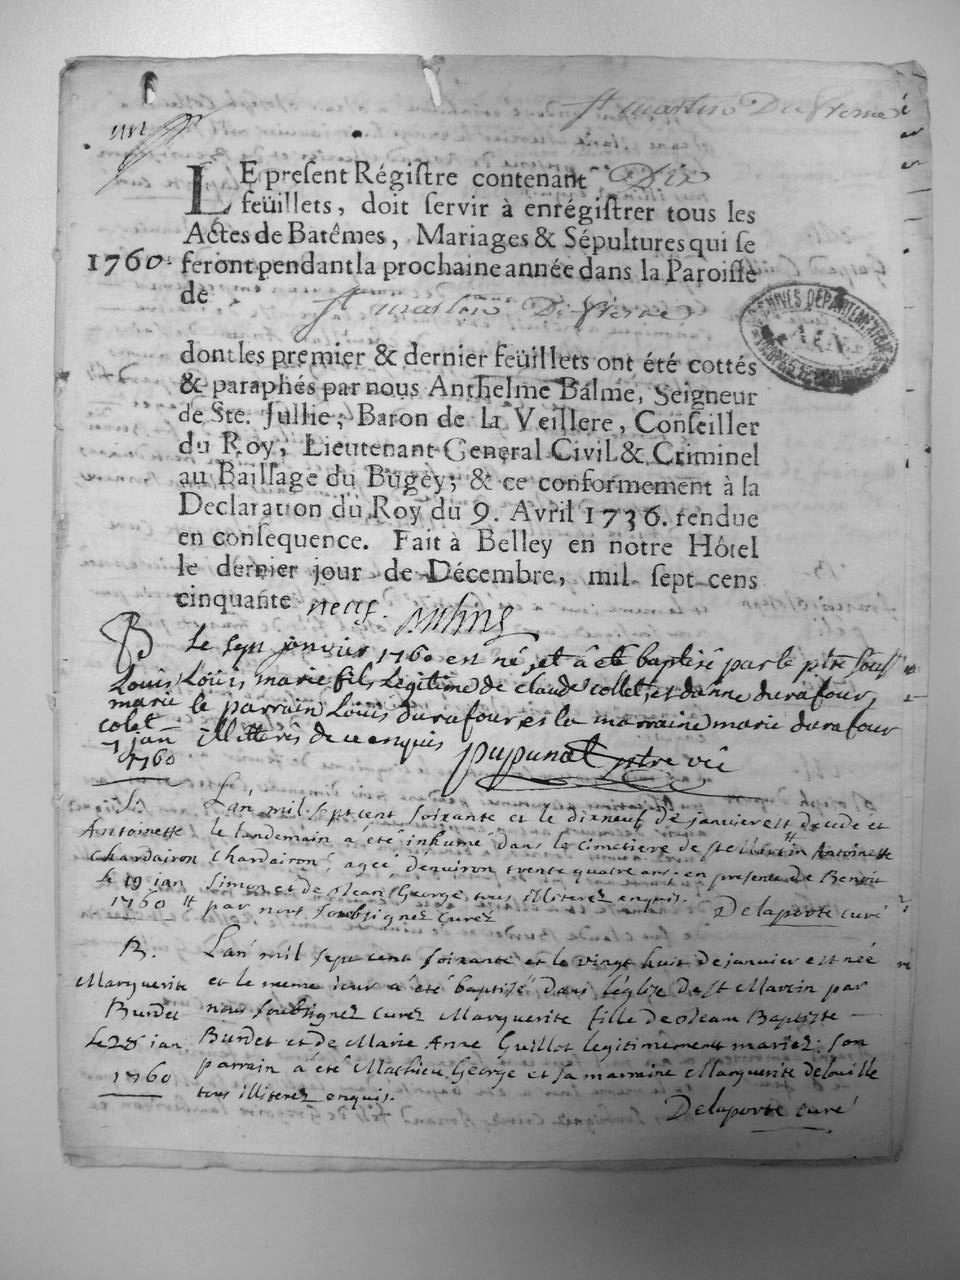 un
St martin Du fresne
LE present Régistre contenant Dix
feüillets, doit servir à enrégistrer tous les
Actes de Batêmes, Mariages & Sépultures qui se
1760. feront pendant la prochaine année dans la Paroisse
de St martin Du fresne
ARCHIVES DEPARTEMENTALES
AIN
dont les premier & dernier feüillets ont été cottés
& paraphés par nous Anthelme Balme, Seigneur
de Ste. Jullie, Baron de la Veillere, Conseiller
du Roy, Lieutenant General Civil & Criminel
au Bailliage du Bugey; & ce conformement à la
Declaration du Roy du 9. Avril 1736. rendue
en consequence. Fait à Belley en notre Hôtel
le dernier jour de Décembre, mil sept cens
cinquante neuf.
B Le sept janvier 1760 est né, et à été baptisé par le ptre souss
Louis Louis marie fils légitime de claude collet, et danne durafour,
marie le parrain Louis durafour, et la marraine marie durafour
colet illitterés de ce enquis pupunat ptre vic
7 janr
1760
S. L'an mil sept cent soixante et le dixneuf de janvier est decedé et
Antoinette le landemain à été inhumé dans le cimetiere de st Martin Antoinette
Chardairon Chardairon, ageé d'environ trente quatre ans. en présence de Benoit
le 19 jan Simon et de Jean George tous illiterez enquis.
1760 par nous soubsignez curez Delaporte curé
B. L'an mil sept cent soixante et le vingt huit de janvier est née
Marguerite et le meme jour à été baptisé dans l'église de st Martin par
Burdet nous soubsignez curez Marguerite fille de Jean Baptiste
Le 28 jan Burdet et de Marie Anne Guillot legitimement mariez; son
1760 parrain à été Mathieu George et sa marraine Marguerite delouille
tous illiterez enquis.
Delaporte curé